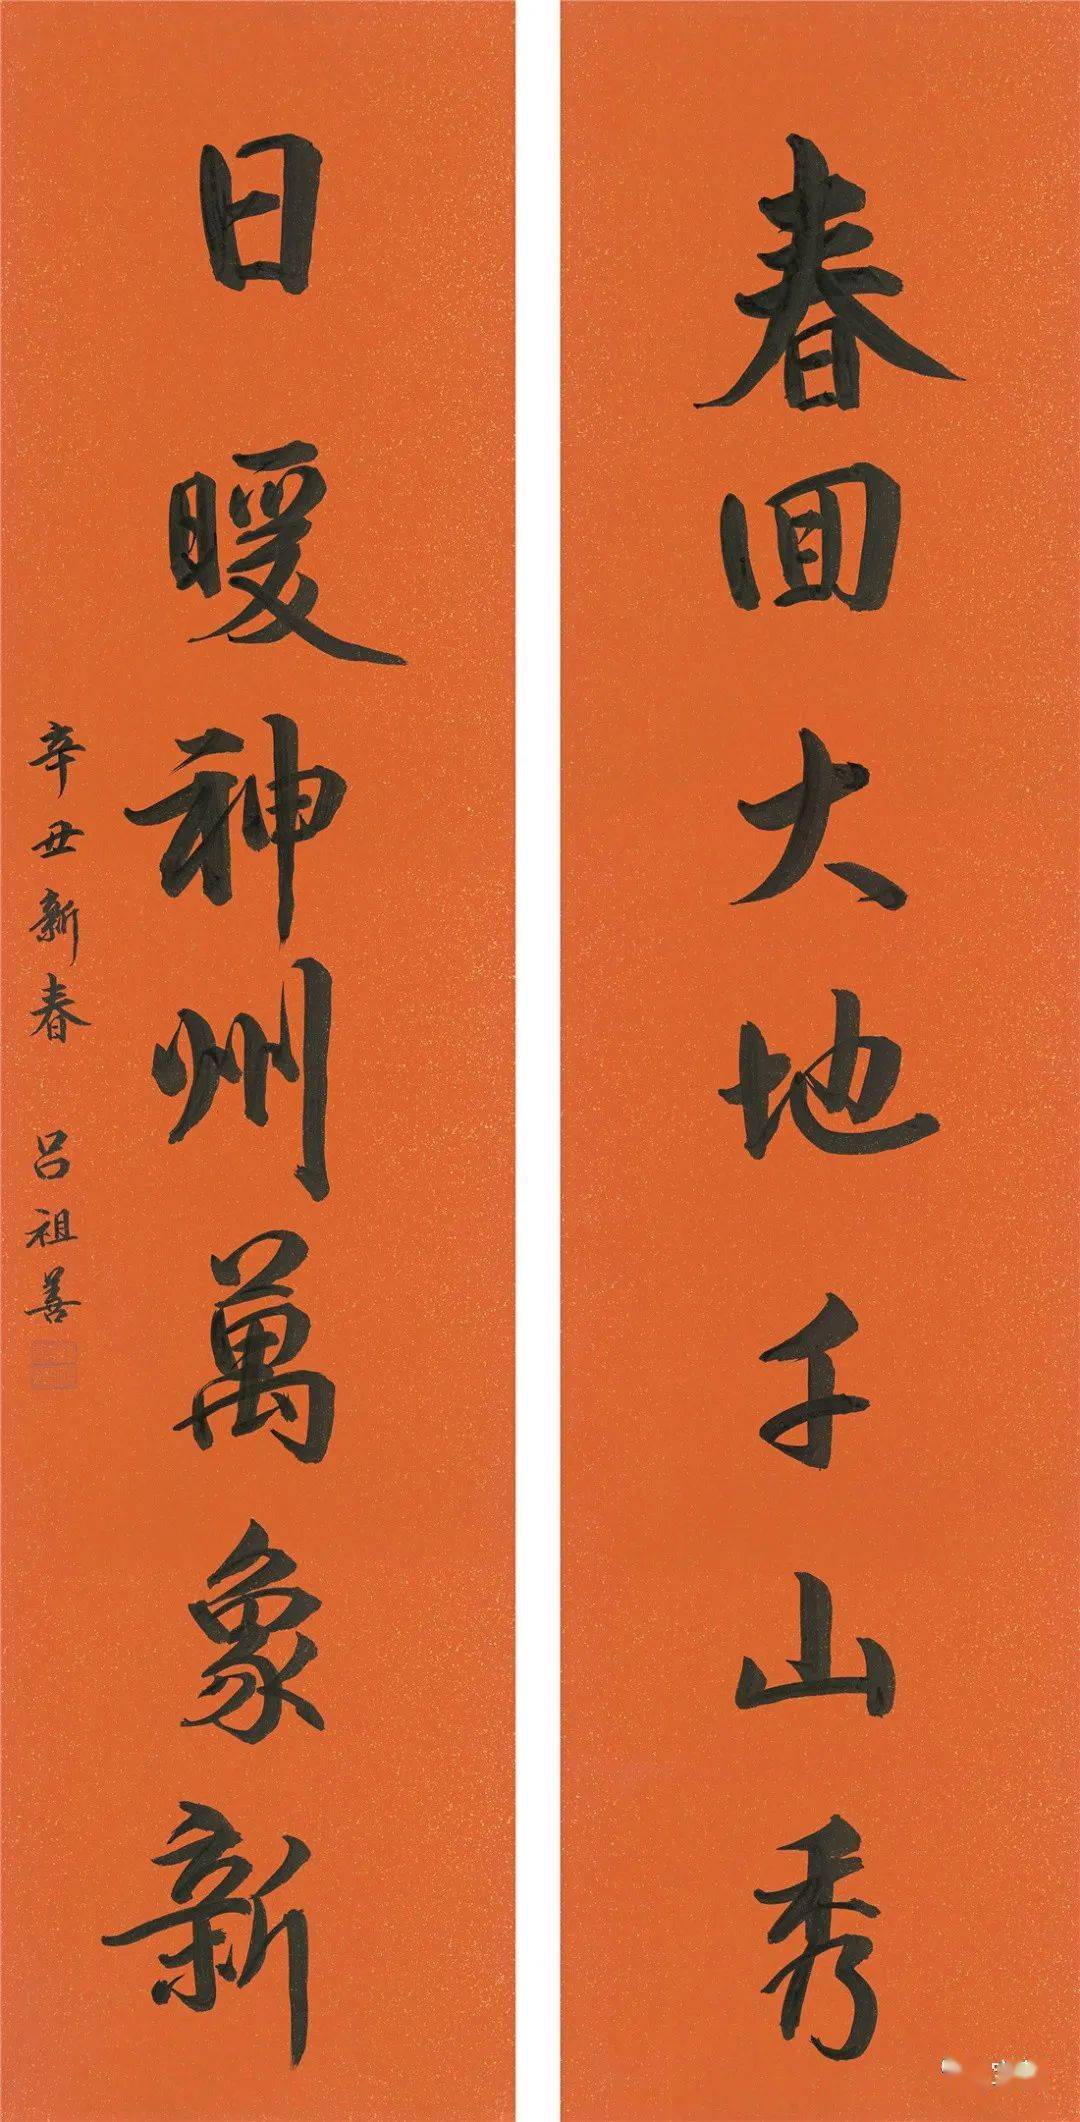 春回大地千山秀
日暖神州萬象新
辛丑新春 吕祖善